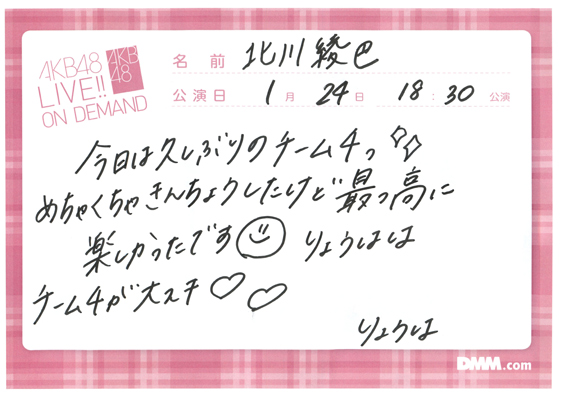 AKB48
LIVE!!
ON DEMAND
AKB
48
名前 北川綾巴
公演日 1月 24日 18:30 公演
今日は久しぶりのチーム4っ
めちゃくちゃきんちょうしたけど最っ高に
楽しかったです りょうはは
チーム4が大スキ♡♡
りょうは
DMM.com